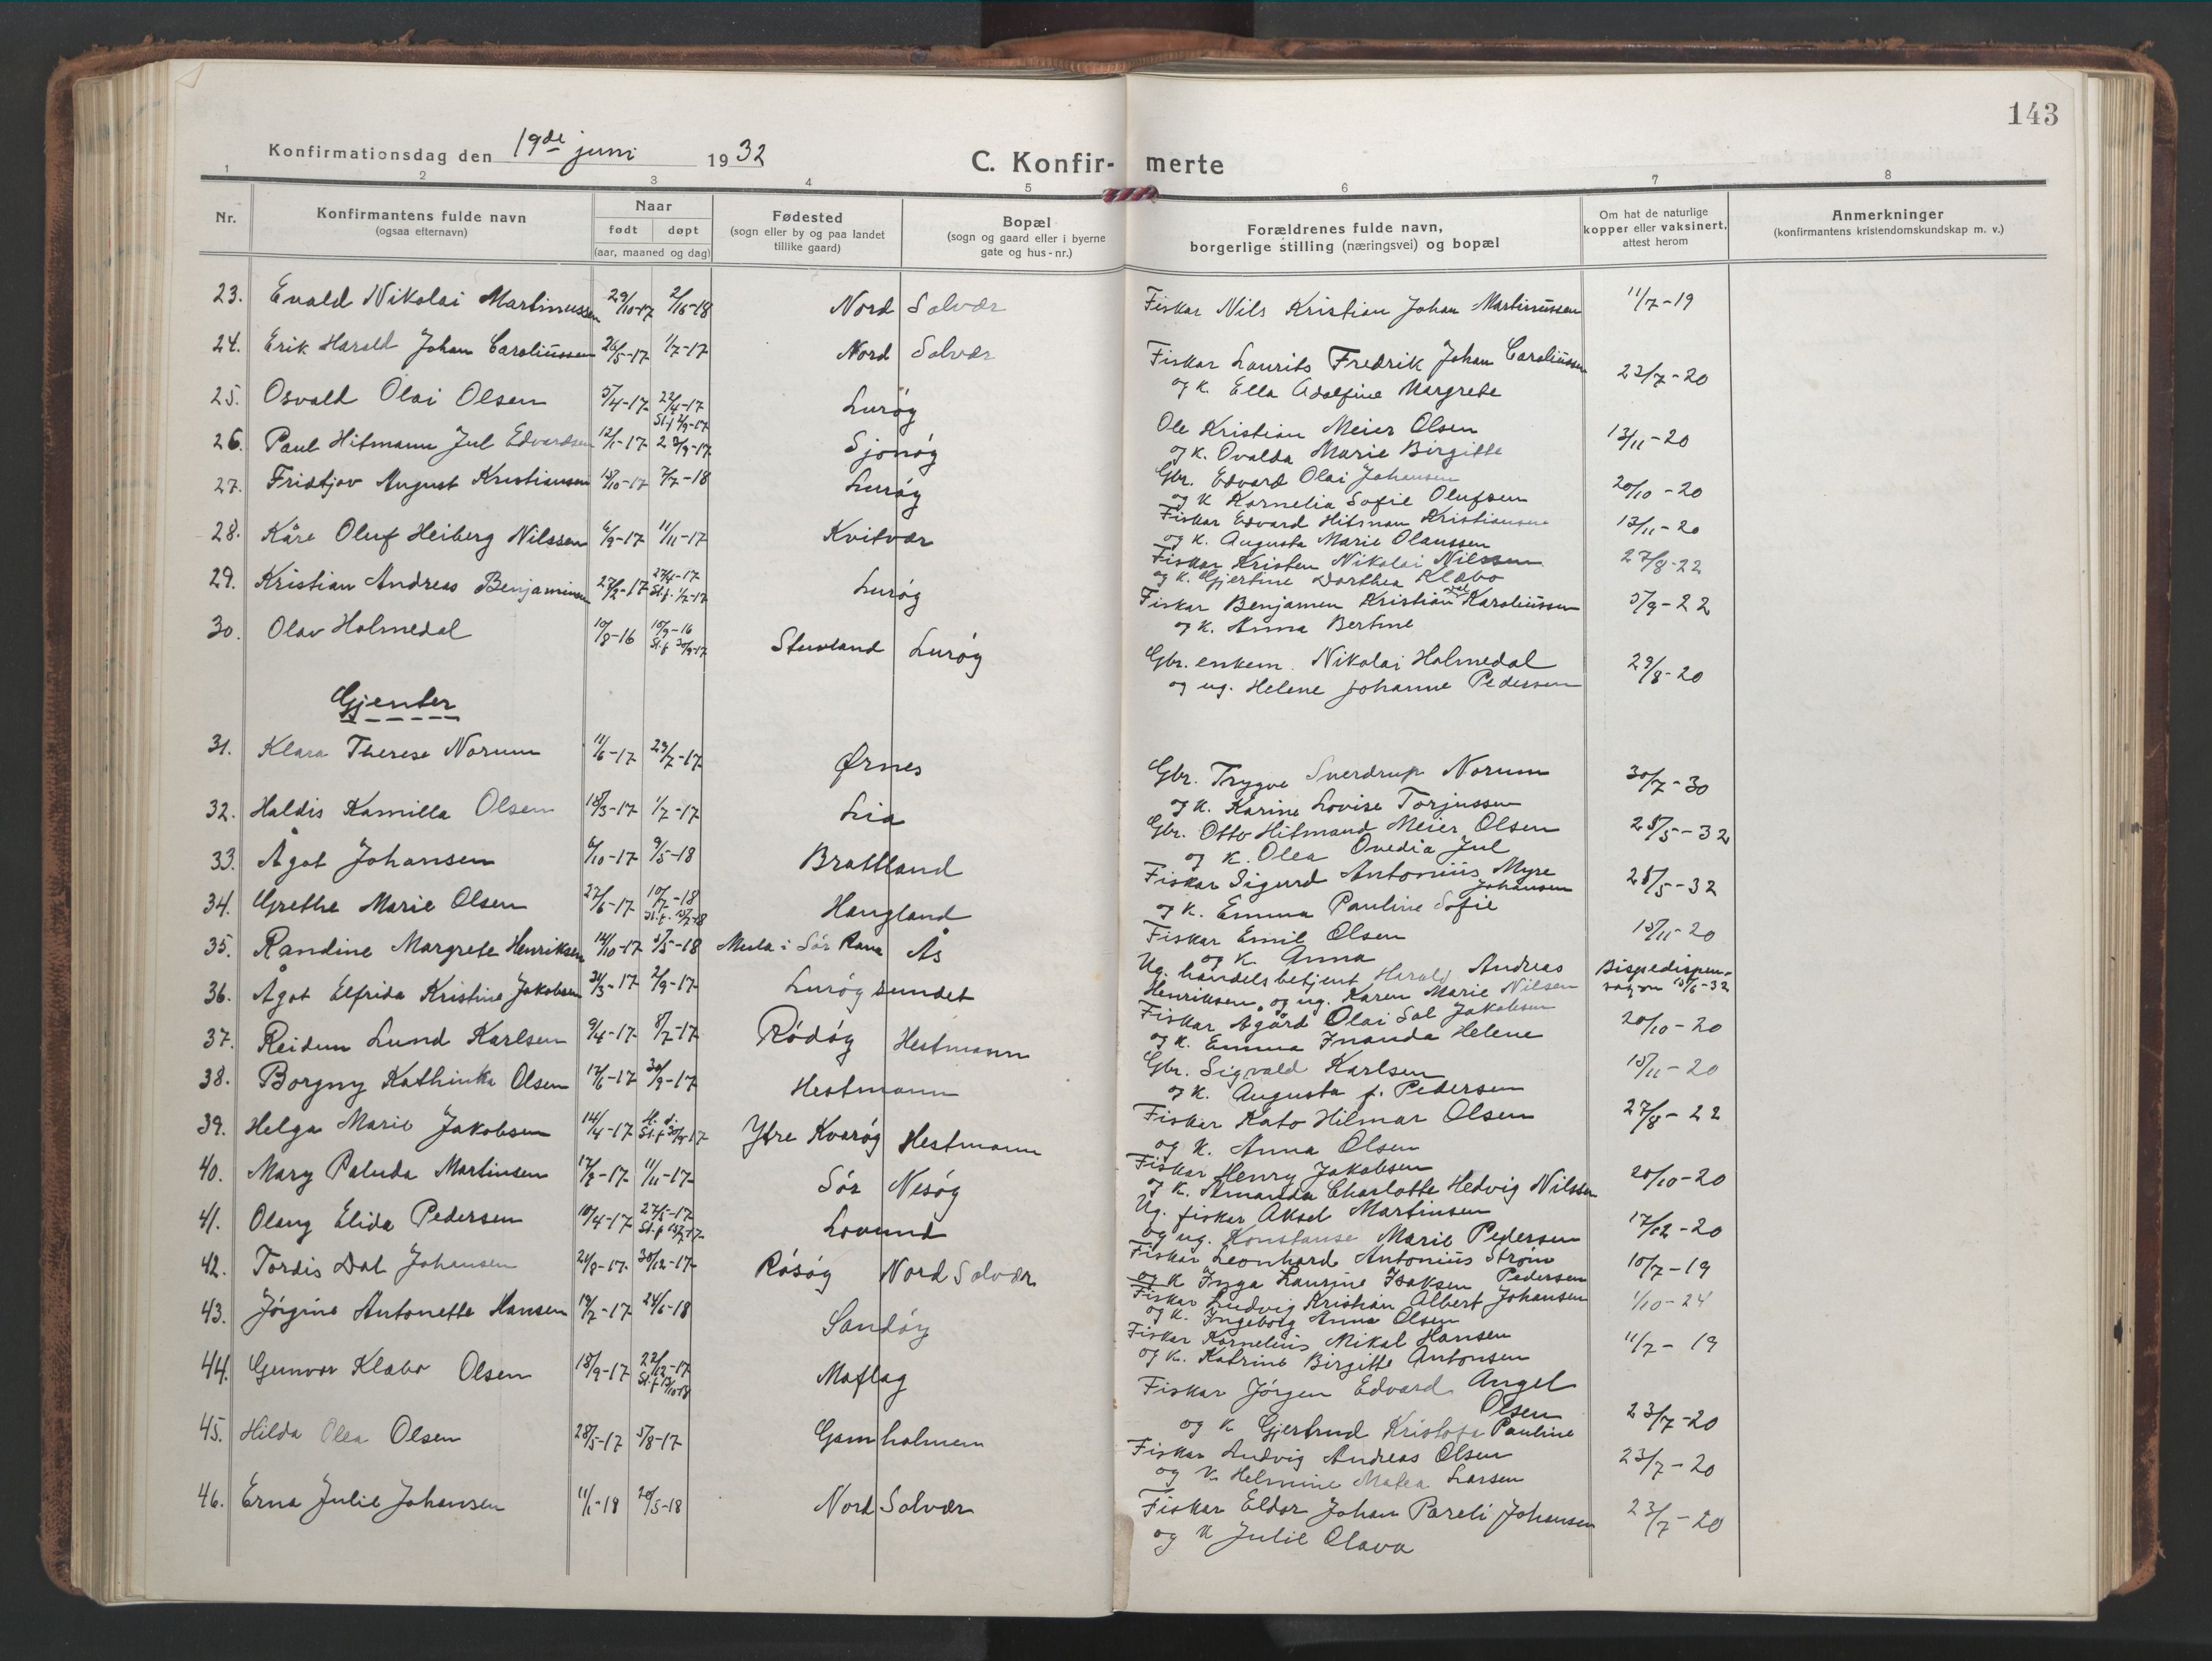 143
Konfirmationsdag den 19de juni 1932
C. Konfir- merte
1 2 3 4 5 6 7 8
Nr.
Konfirmantens fulde navn
(ogsaa efternavn)
Naar
født døpt
(aar, maaned og dag)
Fødested
(sogn eller by og paa landet
tillike gaard)
Bopæl
(sogn og gaard eller i byerne
gate og hus-nr.)
Forældrenes fulde navn,
borgerlige stilling (næringsvei) og bopæl
Om hat de naturlige
kopper eller vaksinert,
attest herom
Anmerkninger
(konfirmantens kristendomskundskap m. v.)
23. Evald Nikolai Martinussen 29/10-17 2/10-18 Nord Solvær Fiskar Nils Kristian Johan Martinussen 11/7-19
24. Erik Harald Johan Caroliussen 26/5-17 1/7-17 Nord Solvær Fiskar Laurits Fredrik Johan Caroliussen 23/7-20
og k. Ella Adolfine Margrete
25. Osvald Olai Olsen 5/4-17 22/4-17 Lurøy
St.f. 2/9-17
Ole Kristian Meier Olsen 13/11-20
og k. Ovalda Marie Birgitte
26. Paul Hitmann Jul Edvardsen 12/1-17 23/9-17 Sjonøy
Gbr. Edvard Olai Johansen 20/10-20
og k Kornelia Sofie Olufsen
27. Fridtjov August Kristiansen 15/10-17 7/7-18 Lurøy
Fiskar Edvard Hitman Kristiansen 13/11-20
og k. Augusta Marie Olaussen
28. Kåre Oluf Heiberg Nilssen 6/9-17 11/11-17 Kvitvær
Fiskar Kristen Nikolai Nilssen 27/8-22
og k. Gjertine Dorthea Klæbo
29. Kristian Andreas Benjaminsen 27/2-17 27/4-17 Lurøy
St.f. 1/7-17
Fiskar Benjamen Kristian Karoliussen 5/9-22
og k. Anna Bertine
30. Olav Holmedal 10/8-16 10/9-16 Stuvland Lurøy
St.f. 30/9-17
Gbr. enkem. Nikolai Holmedal 29/8-20
og ug. Helene Johanne Pedersen
Gjenter
31. Klara Therese Norum 11/6-17 29/7-17 Ørnes
Gbr. Trygve Sverdrup Norum 30/7-30
og k. Karine Lovise Torjussen
32. Haldis Kamilla Olsen 18/3-17 1/7-17 Lia
Gbr. Otto Hitmand Meier Olsen 25/5-32
og k. Olea Ovedia Jul
33. Ågot Johansen 6/10-17 9/5-18 Brattland
Fiskar Sigurd Antonius Myre Johansen 25/5-32
og k. Emma Pauline Sofie
34. Grethe Marie Olsen 27/6-17 10/7-18 Haugland
Fiskar Emil Olsen 15/11-20
og k. Anna
35. Randine Margrete Henriksen 14/10-17 5/5-18 Mesla i Sør Rana Ås
Ug. handelsbetjent Harald Andreas Bispedispen-
Henriksen og ug. Karen Marie Nilsen sasjon 15/6-32
36. Ågot Elfrida Kristine Jakobsen 31/3-17 2/9-17 Lurøysundet
Fiskar Ågård Olai Sol Jakobsen 20/10-20
og k. Emma Jnanda Helene
37. Reidun Lund Karlsen 9/4-17 8/7-17 Rødøy Hestmann
Gbr. Sigvald Karlsen 15/11-20
og k. Augusta f. Pedersen
38. Borgny Kathinka Olsen 17/6-17 30/9-17 Hestmann
Fiskar Kato Hilmar Olsen 27/8-22
og k. Anna Olsen
39. Helga Marie Jakobsen 14/4-17 Ytre Kvarøy Hestmann
Fiskar Henry Jakobsen 20/10-20
og k. Amanda Charlotte Hedvig Nilssen
40. Mary Paluda Martinsen 17/8-17 11/11-17 Sør Nesøy
Ug. fiskar Aksel Martinsen 17/12-20
og ug. Konstanse Marie Pedersen
41. Olaug Elida Pedersen 10/4-17 27/5-17 Lovund
St.f. 15/7-17
Fiskar Leonhard Antonius Strøm Pedersen 10/7-19
og k Inga Laurine Isaksen
42. Tordis Dal Johansen 21/8-17 30/12-17 Røsøy Nord Solvær
Fiskar Ludvig Kristian Albert Johansen 1/10-24
og k. Ingeborg Anna Olsen
43. Jørgine Antonette Hansen 19/7-17 24/6-18 Sandøy
Fiskar Kornelius Mikal Hansen 11/7-19
og k. Katrine Birgitte Antonsen
44. Gunvor Klæbo Olsen 18/9-17 22/12-17 Moflag
St.f. 13/10-18
Fiskar Jørgen Edvard Angel Olsen 23/7-20
og k Gjertrud Kristofa Pauline
45. Hilda Olea Olsen 28/5-17 5/8-17 Gamholmen
Fiskar Ludvig Andreas Olsen 23/7-20
og k Helmine Matea Larsen
46. Erna Julie Johansen 11/1-18 20/5-18 Nord Solvær
Fiskar Eldor Johan Pareli Johansen 23/7-20
og k Julie Olava